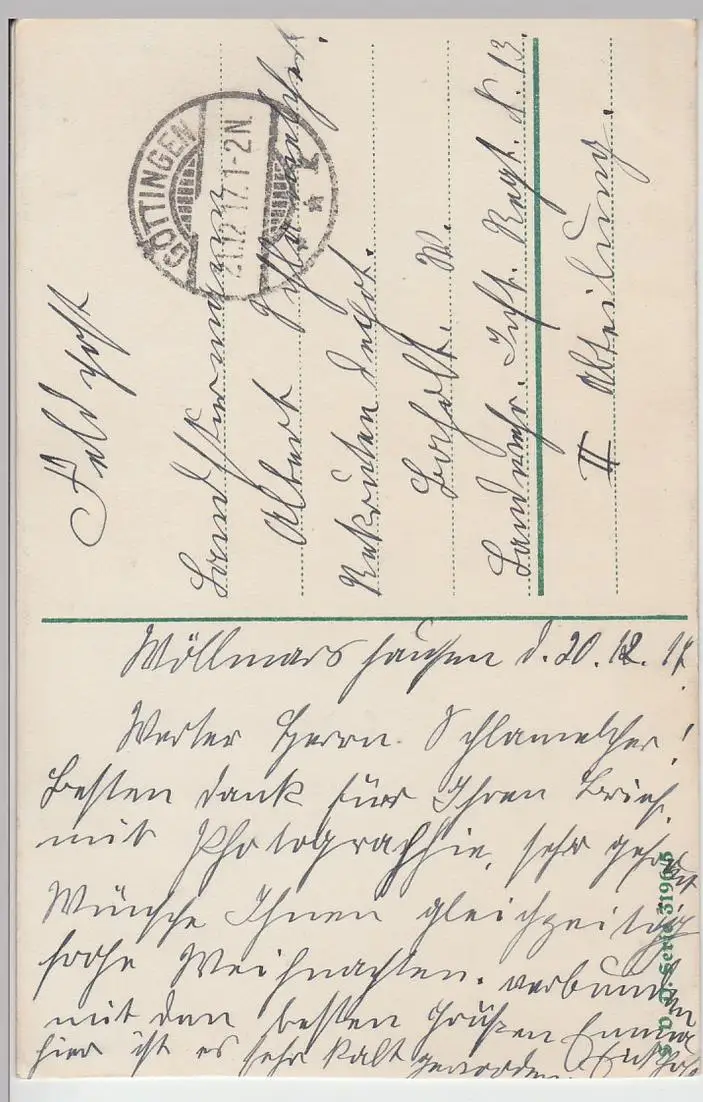 Feldpost
GÖTTINGEN
21.12.17.1-2N.
Landsturmmann
Albert Schlamelcher.
Rekruten Depot.
Bocholt. W.
Landwehr. Inft. Regt. N. 13.
II Abteilung.
Wöllmarshausen d. 20.12.17.
Werter Herrn. Schlamelcher!
Besten dank für Ihren Brief.
mit Photographie, sehr gefreut
Wünsche Ihnen gleichzeitig
frohe Weihnachten. verbunden
mit den besten Grüßen Emma
hier ist es sehr kalt geworden
Serie 3196/5